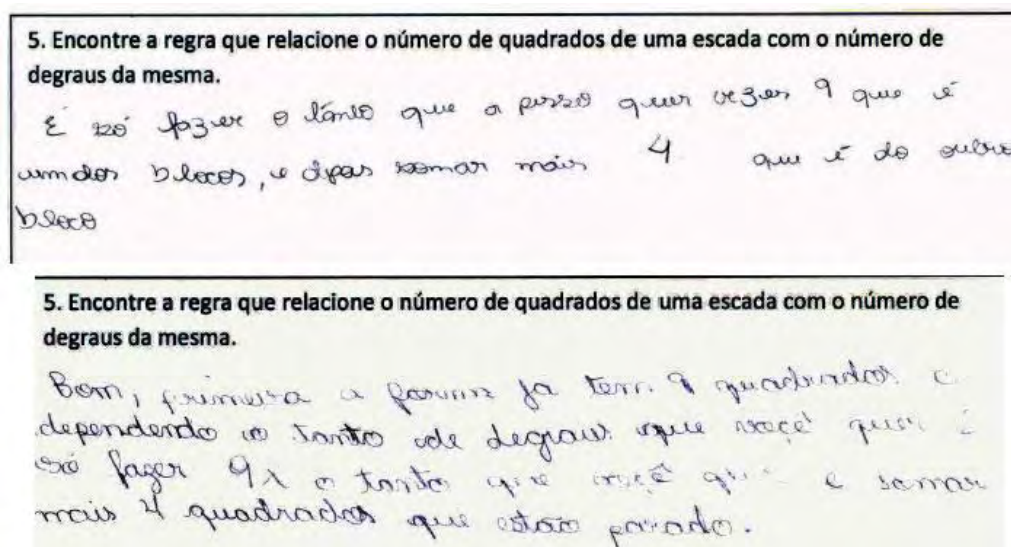 5. Encontre a regra que relacione o número de quadrados de uma escada com o número de
degraus da mesma.
É só fazer o tanto que a pesso quer vezes 9 que é
um dos blocos, e dpois somar mais 4 que é do outro
bloco
5. Encontre a regra que relacione o número de quadrados de uma escada com o número de
degraus da mesma.
Bom, primeira a já tem 9 quadrados e
dependendo o tanto de degraus que você quer é
só fazer 9x o tanto que você e somar
mais 4 quadrados que estão parado.